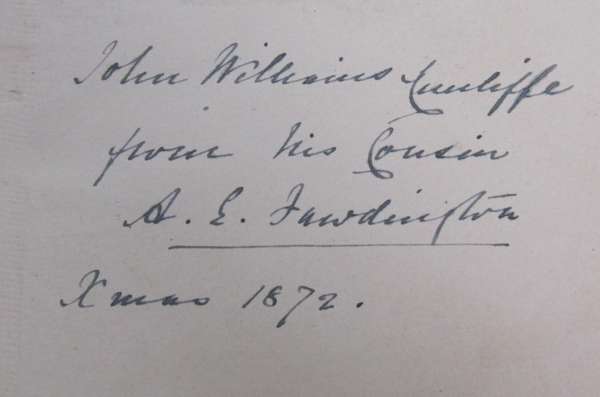 John Williams Cunliffe
from his Cousin
A. E. Fawdington
Xmas 1872.